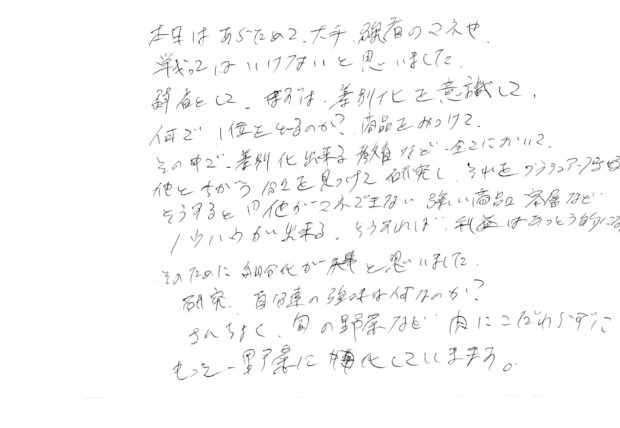 本日は あらためて、大手、強者のマネや
戦ってはいけないと思いました。
弱者として、まずは、差別化を意識して、
何で1位をとるのか? 商品をみつけて、
その中で、差別化出来る など、全てにおいて、
他とちがう 所を見つけて 研究し、それをブラッシュアップ
そうすると 他がマネできない 強い商品、客層など
ノウハウが出来る。そうすれば、利益はあっとう的に
そのために 細分化が 必要と思いました。
研究、自分達の強味は何なのか?
さんちょく、旬の野菜など 肉にこだわらずに
もっと野菜に 特化していきます。